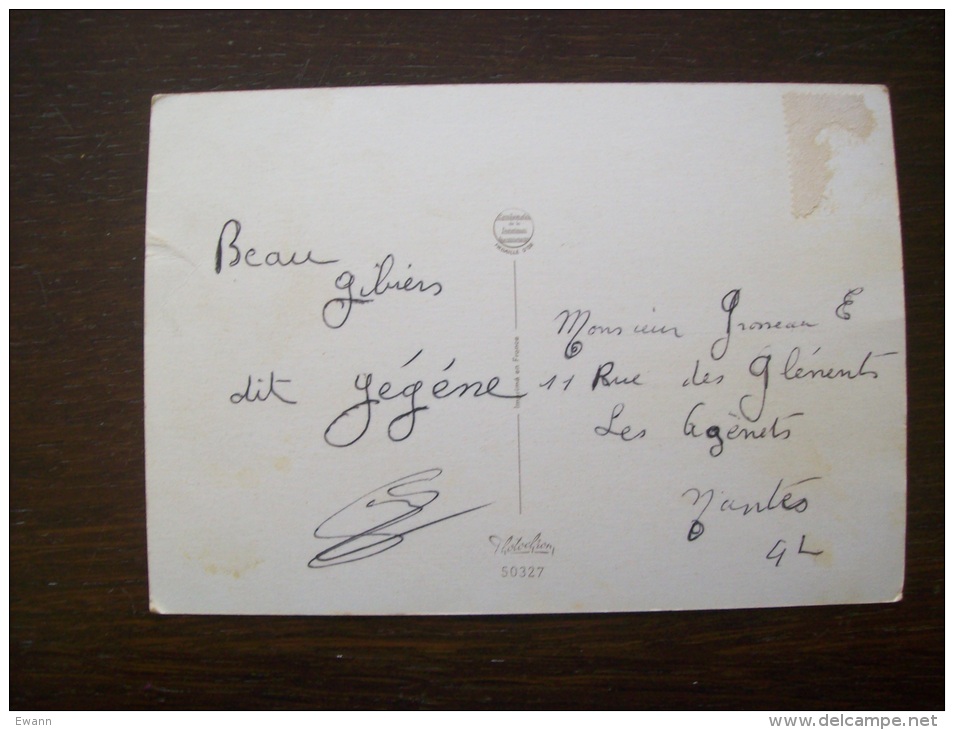 Beau
gibiers
dit gégéne
Monsieur Grosseau E
11 Rue des Glénents
Les Agènets
Nantes
4 L
MEDAILLE D'OR
Imprimé en France
Photochrom
50327
Ewann
www.delcampe.net